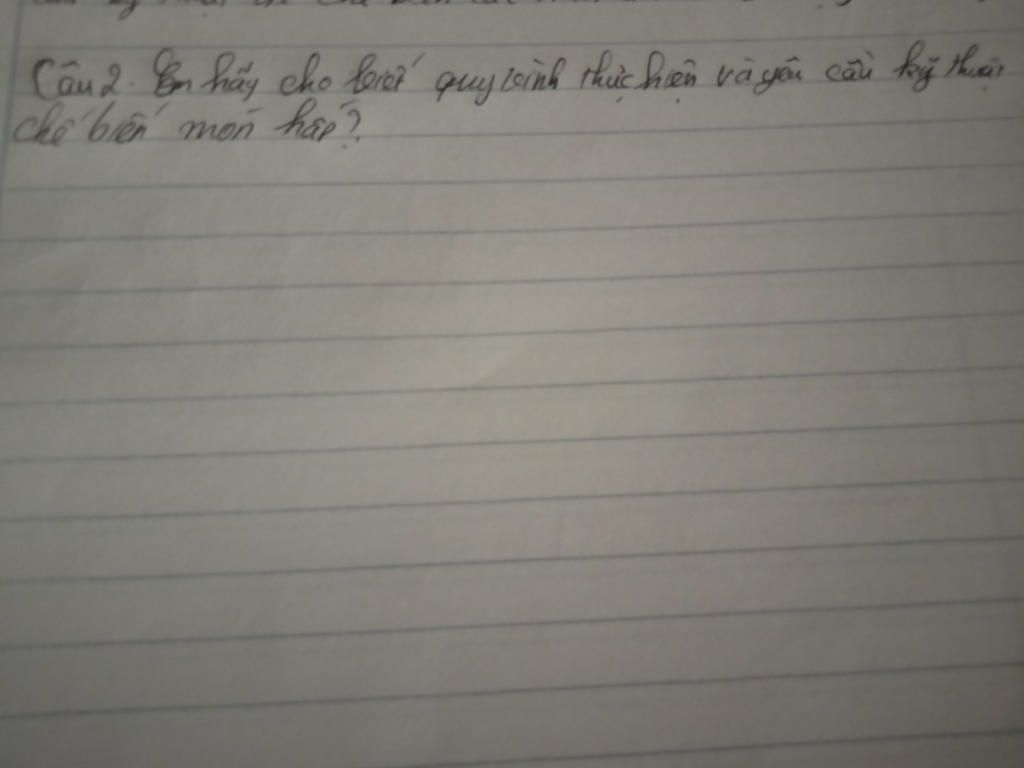 Câu 2. Em hãy cho biết quy trình thực hiện và yêu cầu kỹ thuật
chế biến món hấp?